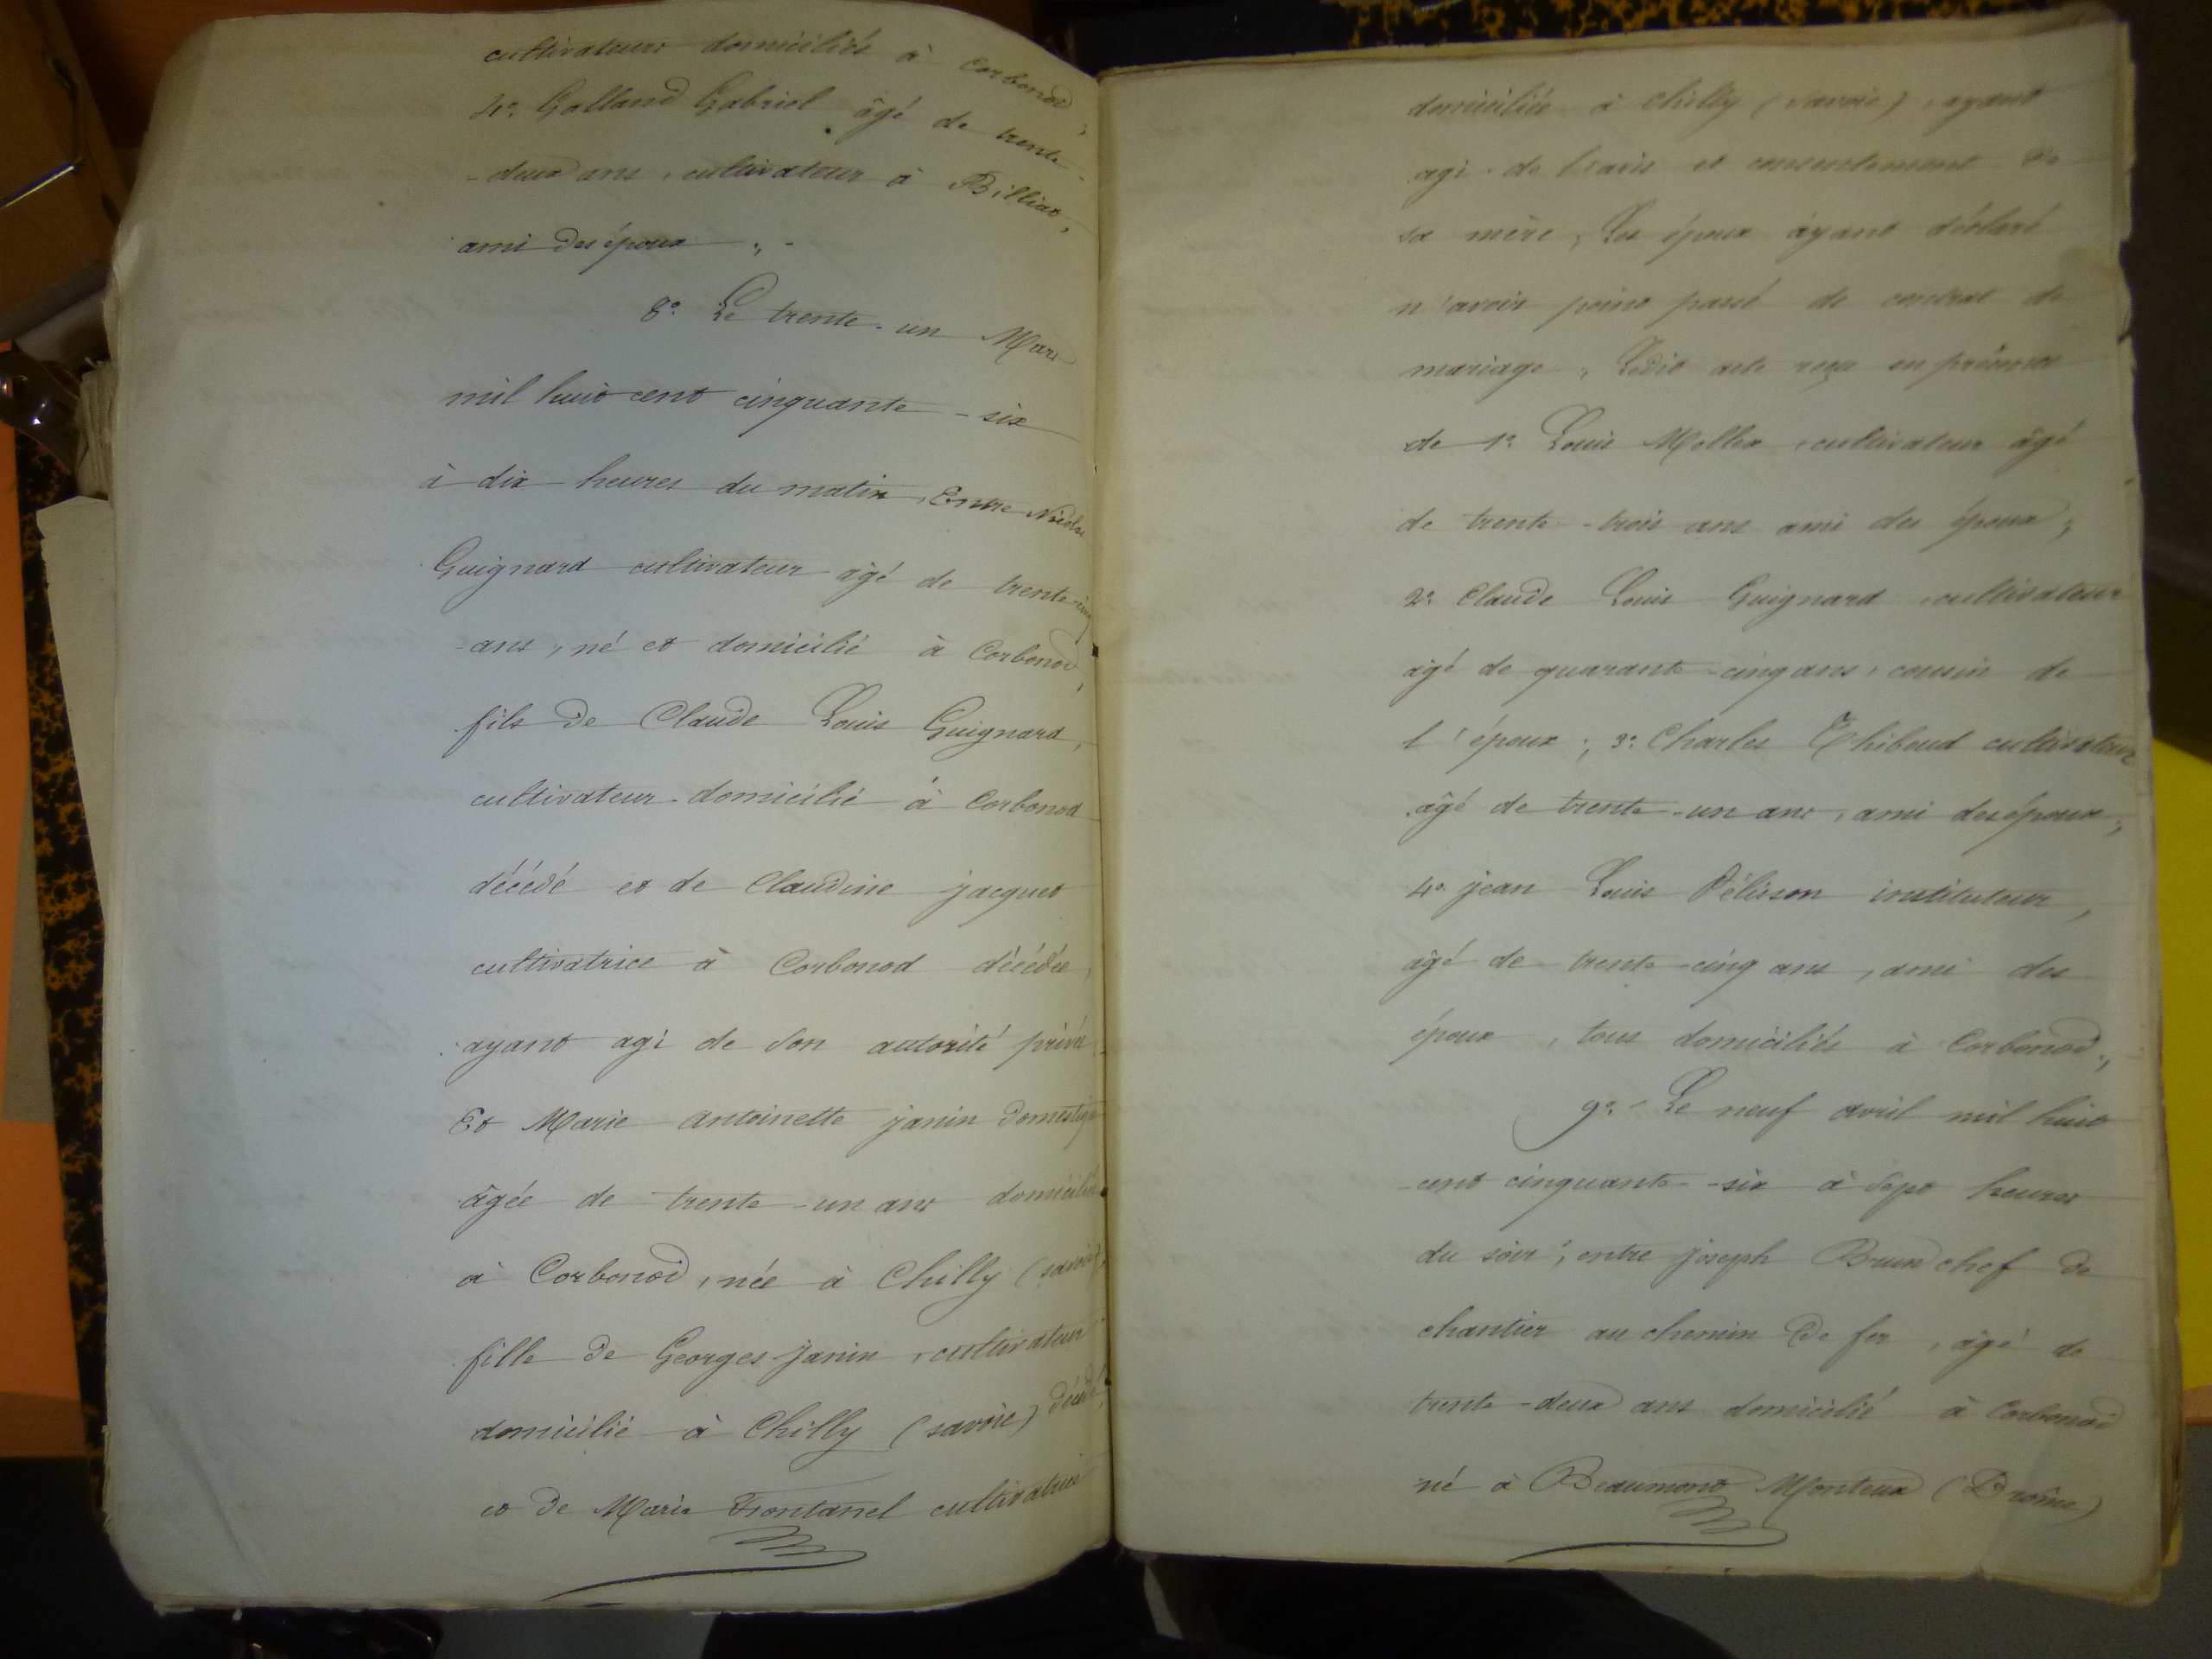 cultivateurs domiciliés à Corbonod,
4º. Galland Gabriel âgé de trente-
-deux ans, cultivateur à Billiat,
ami des époux ., -
8º. Le trente-un Mars
mil huit cent cinquante-six
à dix heures du matin, Entre Nicolas
Guignard cultivateur âgé de trente-cinq
-ans, né et domicilié à Corbonod,
fils de Claude Louis Guignard,
cultivateur domicilié à Corbonod
décédé et de Claudine jacquet
cultivatrice à Corbonod décédée,
ayant agi de son autorité privée
Et Marie antoinette janin domestique
âgée de trente-un ans domiciliée
à Corbonod, née à Chilly (savoie),
fille de Georges janin, cultivateur
domicilié à Chilly (savoie) décédé,
et de Marie Frontanel cultivatrice
domiciliée à Chilly (savoie), ayant
agi de l'avis et consentement de
sa mère, Les époux ayant déclaré
n'avoir point passé de contrat de
mariage, Ledit acte reçu en présence
de 1º. Louis Mollex, cultivateur âgé
de trente-trois ans ami des époux,
2º. Claude Louis Guignard, cultivateur
âgé de quarante-cinq ans, cousin de
l'époux; 3º. Charles Thiboud cultivateur
âgé de trente-un ans, ami des époux,
4º. jean Louis Pélisson instituteur,
âgé de trente-cinq ans, ami des
époux, tous domiciliés à Corbonod,
9º. Le neuf avril mil huit
cent cinquante-six à sept heures
du soir, entre joseph Brun chef de
chantier au chemin de fer, âgé de
trente-deux ans domicilié à Corbonod
né à Beaumont Monteux (Drôme)